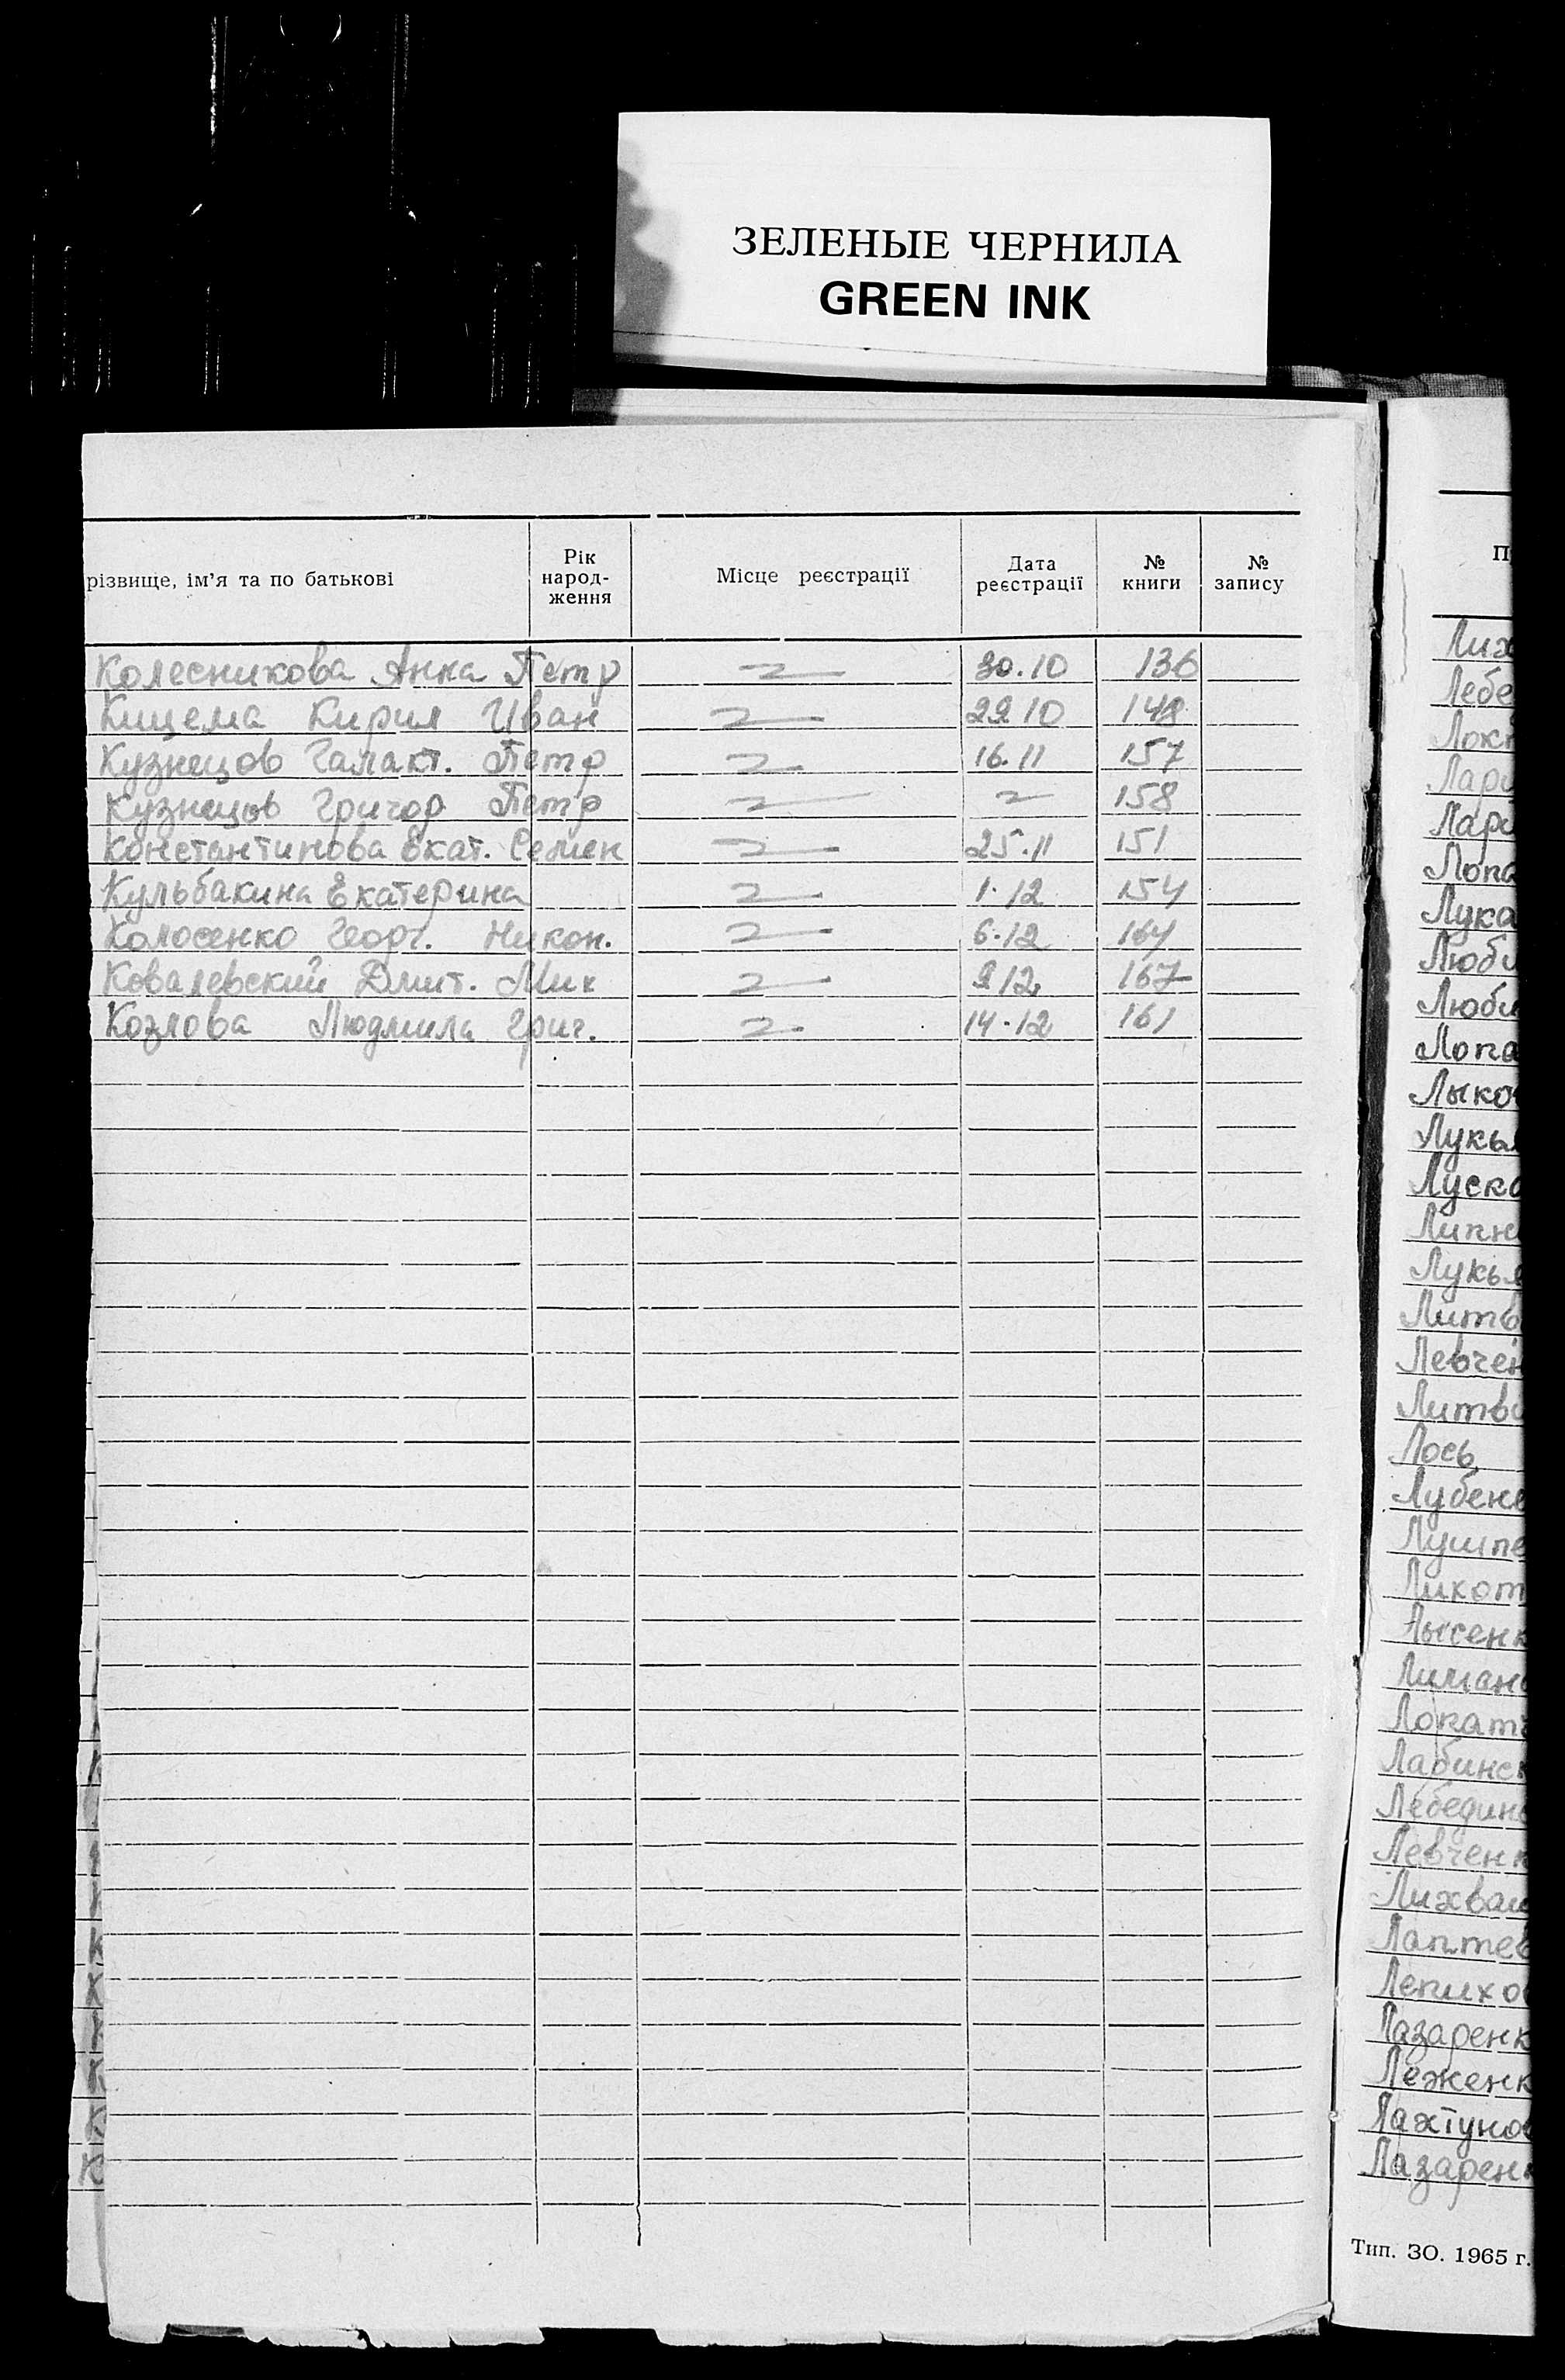 ЗЕЛЕНЫЕ ЧЕРНИЛА
GREEN INK
різвище, ім'я та по батькові Рік народ-ження Місце реєстрації Дата реєстрації № книги № запису
Колесникова Анна Петр 30.10 136
Кищема Кирил Иван 29 10 148
Кузнецов Галакт. Петр 16.11 157
Кузнецов Григор Петр 158
Константинова Екат. Семен 25.11 151
Кульбакина Екатерина 1.12 154
Колосенко Георг. Никон. 6.12 164
Ковалевский Дмит. Мих 9 12 167
Козлова Людмила Григ. 14.12 161
П
Лих
Лебе
Локт
Лари
Лари
Лопа
Лука
Люби
Люби
Лопа
Лыко
Лукья
Луско
Липн
Лукья
Литв
Левчен
Литви
Лось
Лубен
Лушпе
Лихот
Лысенк
Лиман
Локат
Лабинск
Лебедин
Левченк
Лихва
Лаптев
Лепихо
Лазаренк
Леженк
Лахтуно
Лазарен
Тип. ЗО. 1965 г.